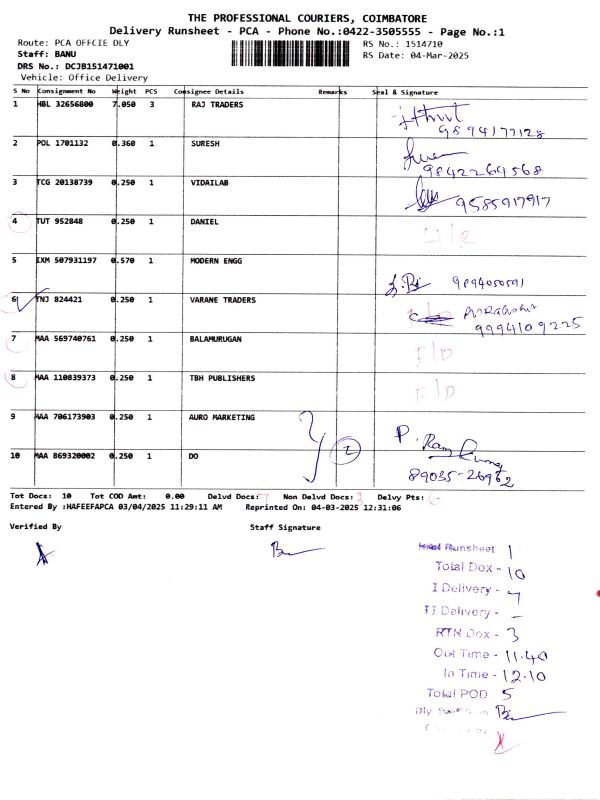 THE PROFESSIONAL COURIERS, COIMBATORE
Delivery Runsheet - PCA - Phone No.:0422-3505555 - Page No.:1
Route: PCA OFFCIE DLY
RS No.: 1514710
Staff: BANU
RS Date: 04-Mar-2025
DRS No.: DCJB151471001
Vehicle: Office Delivery
S No Consignment No Weight PCS Consignee Details Remarks Seal & Signature
1 HBL 32656800 7.050 3 RAJ TRADERS
9894177128
2 POL 1701132 0.360 1 SURESH
9842264568
3 TCG 20138739 0.250 1 VIDAILAB 9585917917
4 TUT 952848 0.250 1 DANIEL
5 IXM 507931197 0.570 1 MODERN ENGG
9894050591
6 TNJ 824421 0.250 1 VARANE TRADERS
9994109225
7 MAA 569740761 0.250 1 BALAMURUGAN F/D
8 MAA 110839373 0.250 1 TBH PUBLISHERS F/D
9 MAA 706173903 0.250 1 AURO MARKETING
2 P. Ram Kumar
10 MAA 869320002 0.250 1 DO 89035-26962
Tot Docs: 10 Tot COD Amt: 0.00 Delvd Docs: 7 Non Delvd Docs: 3 Delvy Pts: 6
Entered By :HAFEEFAPCA 03/04/2025 11:29:11 AM Reprinted On: 04-03-2025 12:31:06
Verified By Staff Signature
Runsheet 1
Total Dox - 10
I Delivery - 7
II Delivery - -
RTN Dox - 3
Out Time - 11.40
In Time - 12.10
Total POD 5